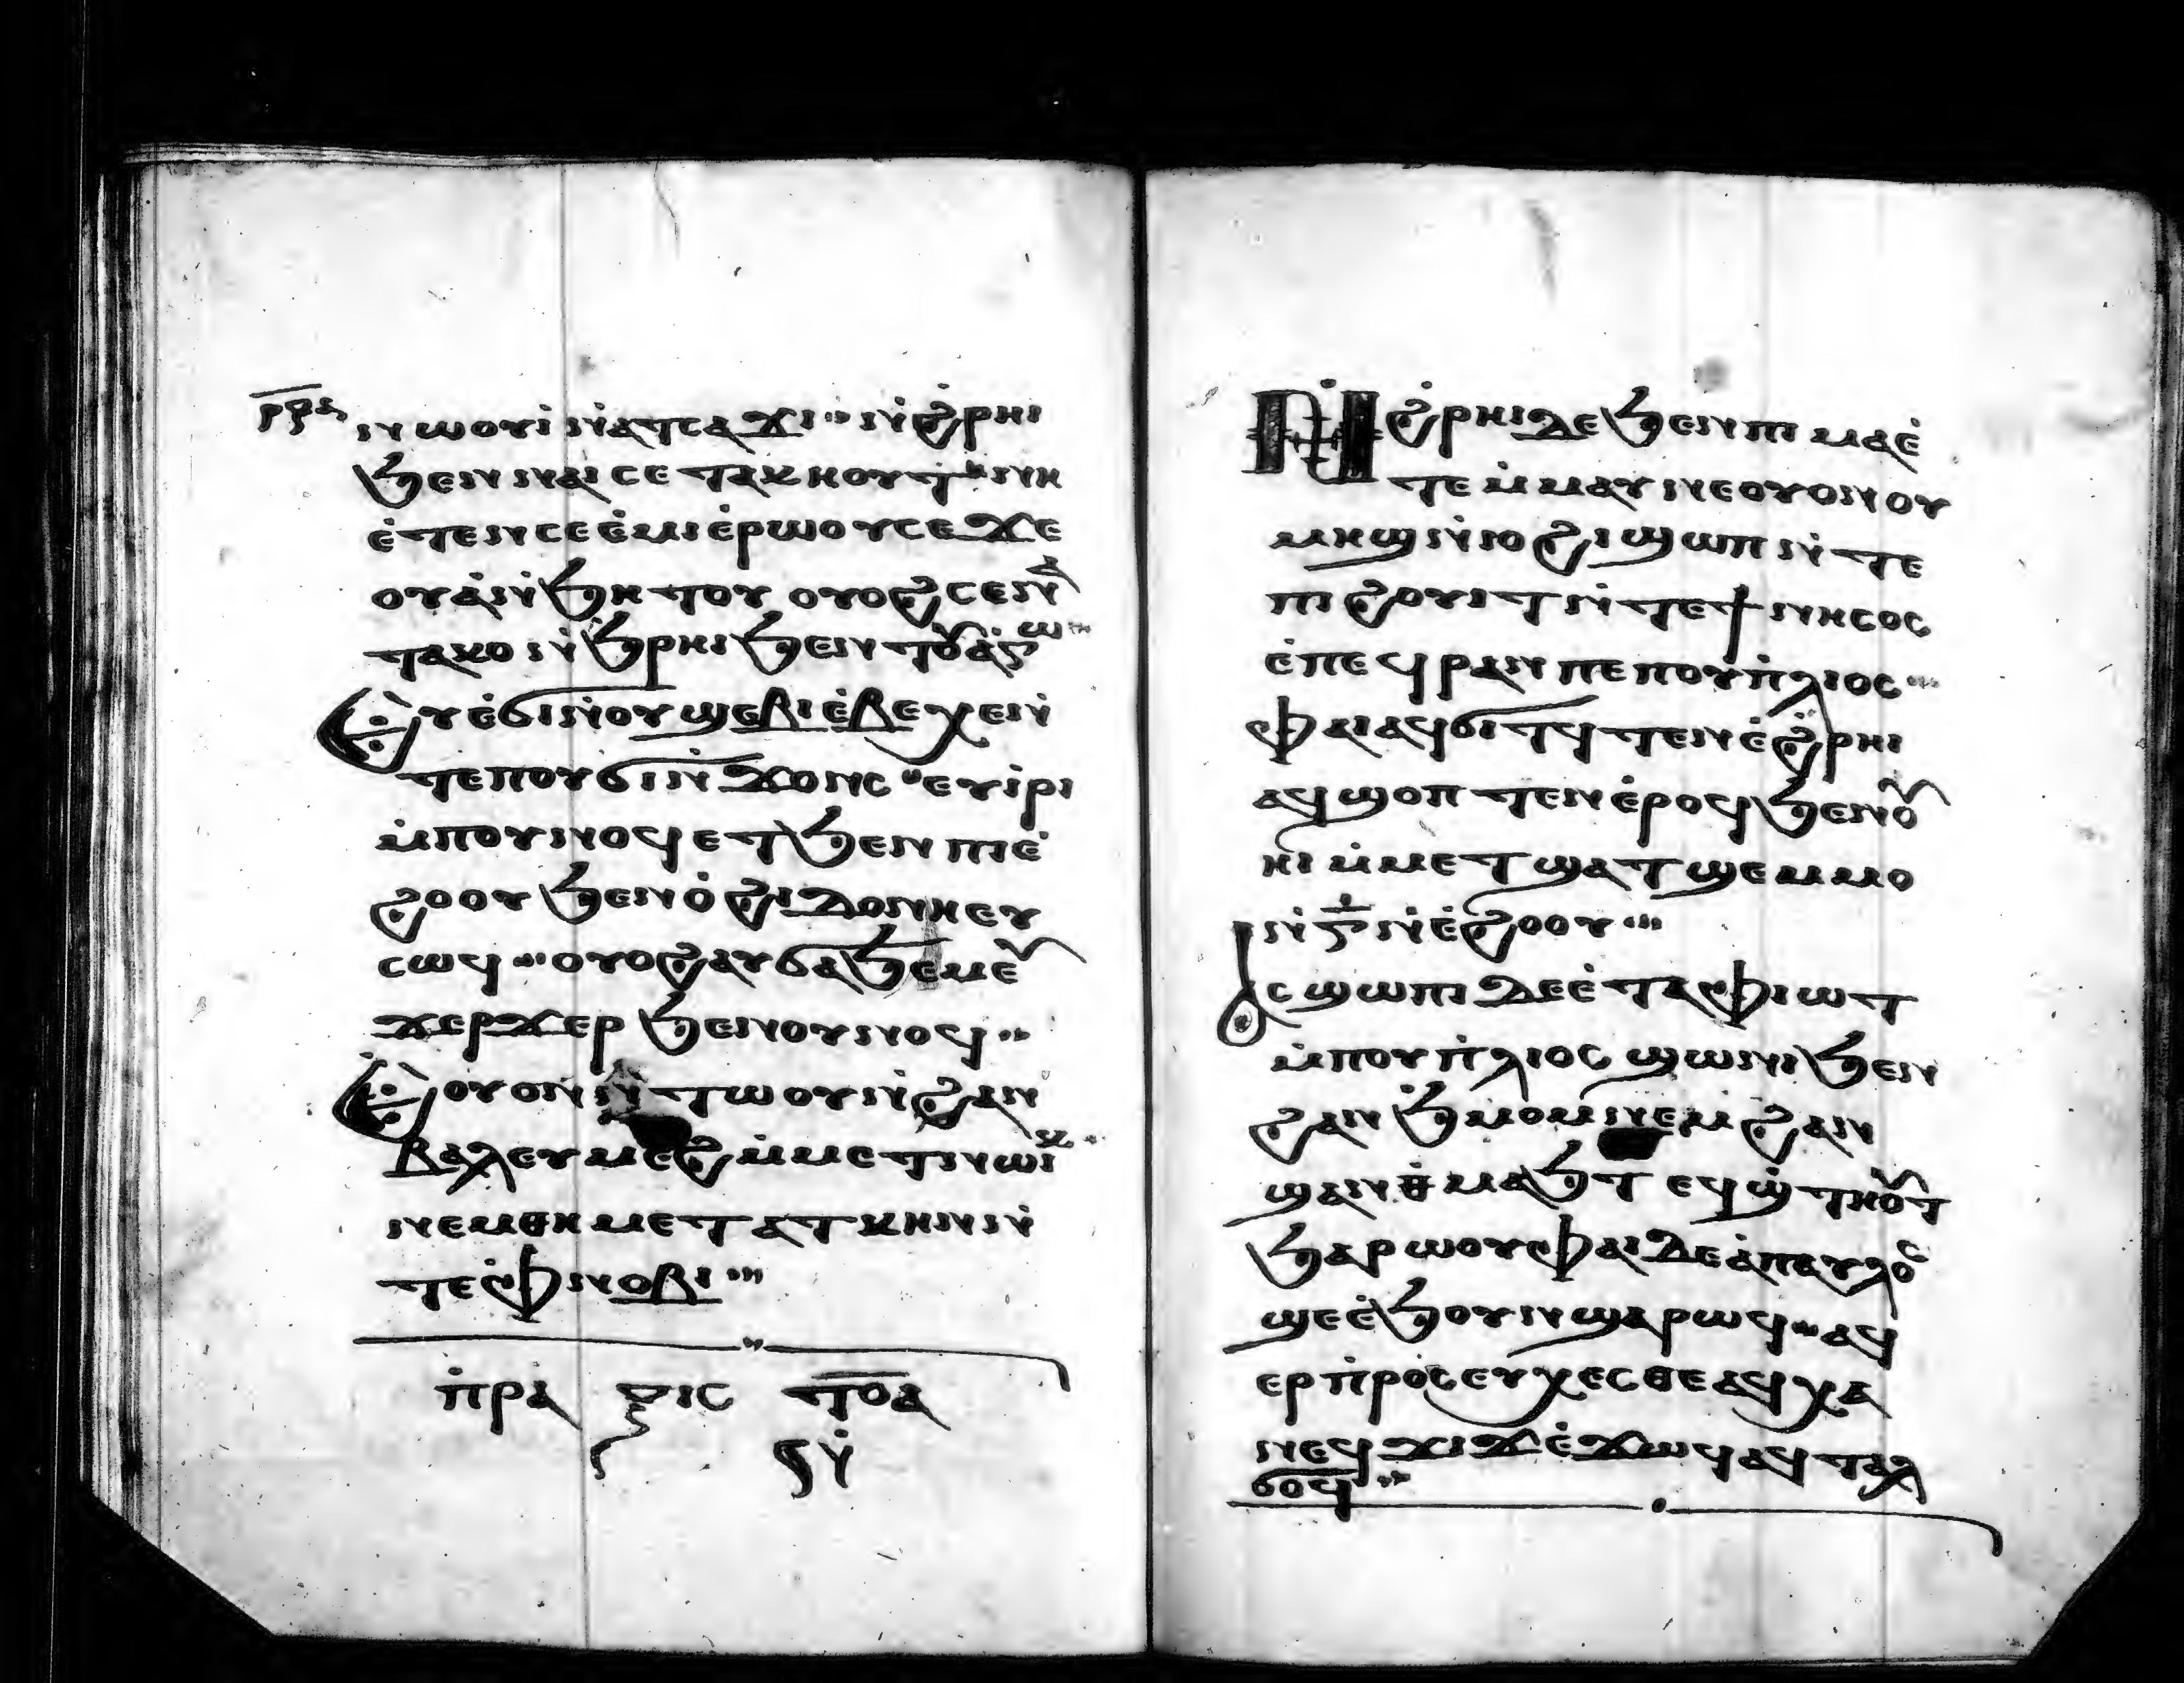 ⲣϥⲁ
ⲛⲱⲟⲩⲓ̀ ⲛ̀ⲁⲧⲥⲁϫⲓ ⲛ̀ϩ̀ⲣⲏⲓ
ϧⲉⲛ ⲛⲁⲓ ⲥⲉⲧⲁⲕⲏⲟⲩⲧ ⲛⲏ
ⲉ̀ⲧⲉⲛⲥⲉⲉ̀ⲙⲓ ⲉ̀ⲣⲱⲟⲩ ⲥⲉϫⲉ
ⲟⲩⲁ̀ ⲛ̀ϧⲏⲧⲟⲩ ⲟⲩⲟϩ ⲥⲉⲛⲁ̀
ⲧⲁⲕⲟ ⲛ̀ϧⲣⲏⲓ ϧⲉⲛ ⲡⲟⲩⲧⲁⲕⲱ
ⲉⲩⲉ̀ϭⲓ ⲛ̀ⲟⲩϣⲉⲃⲓⲉ̀ ⲃⲉⲭⲉ ⲛ̀
ⲧⲉ ⲡⲟⲩϭⲓⲛ̀ϫⲟⲛⲥ ⲉⲩⲓ̀ⲣⲓ
ⲙ̀ⲡⲟⲩⲛⲟϥ ⲉⲧϧⲉⲛ ⲡⲓⲉ̀
ϩⲟⲟⲩ ϧⲉⲛ ⲟ̀ϩⲓⲇⲟⲛⲏ ⲉⲩ
ⲥⲱϥ ⲟⲩⲟϩ ⲁⲩϭⲁϧⲉⲙ ⲉⲩ
ϫⲉⲣϫⲉⲣ ϧⲉⲛ ⲟⲩⲛⲟϥ
ⲉⲟⲩⲟⲛ ⲛ̀ⲧⲱⲟⲩ ⲛ̀ϩⲁⲛ
ⲃⲁⲗ ⲉⲩⲙⲉϩ ⲙ̀ⲙⲉⲧⲛⲱⲓⲕ
ⲛⲉⲙ ⲑⲙⲉⲧⲁⲧⲕⲏⲛ ⲛ̀
ⲧⲉ ⲫⲛⲟⲃⲓ
ⲡ̀ⲣⲁ ⲝⲓⲥ ⲧⲟⲁ
ϥⲛ̀
ⲛ̀ϩ̀ⲣⲏⲓ ⲇⲉ ϧⲉⲛ ⲡⲓⲙⲁ ⲉ̀
ⲧⲉ ⲙ̀ⲙⲁⲩ ⲛⲉ ⲟⲩⲟⲛ ⲟⲩ
ⲙⲏϣ ⲛ̀ⲓⲟϩⲓ ϣⲱⲡ ⲛ̀ⲧⲉ
ⲡⲓϩⲟⲩⲓⲧ ⲛ̀ⲧⲉ ϯⲛⲏⲥⲟⲥ
ⲉ̀ⲡⲉϥⲣⲁⲛ ⲡⲉ ⲡⲟⲩⲡ̀ⲗⲓⲟⲥ
ⲫⲁⲓ ⲁϥϭⲓⲧϥ ⲧⲉⲛ ⲉ̀ϩ̀ⲣⲏⲓ
ⲁϥϣⲟⲡⲧⲉⲛ ⲉ̀ⲣⲟϥ ϧⲉⲛ ⲟⲩ
ⲙⲉⲧⲙⲁⲓϣⲉⲙⲙⲟ
ⲛ̀ⲅ̅ ⲛ̀ⲉ̀ϩⲟⲟⲩ
ⲁⲥϣⲱⲡⲓ ⲇⲉ ⲉ̀ⲧⲁ ⲫⲓⲱⲧ
ⲙ̀ⲡⲟⲩⲡ̀ⲗⲓⲟⲥ ϣⲱⲛⲓ ϧⲉⲛ
ϩⲁⲛϧ̀ⲙⲟⲙ ⲛⲉⲙ ϩⲁⲛ
ϣⲁⲛⲑ̀ⲙⲁϧⲧ ⲉϥϣ̀ⲧⲏⲟⲩⲧ
ϧⲁⲣⲱⲟⲩ ⲫⲁⲓ ⲇⲉ ⲁ̀ ⲡⲁⲩⲗⲟⲥ
ϣⲉ ⲉ̀ϧⲟⲩⲛ ϣⲁⲣⲱϥ ⲁϥ
ⲉⲣⲡ̀ⲣⲟⲥⲉⲩⲭⲉⲥⲑⲉ ⲁϥⲭⲁ
ⲛⲉϥϫⲓϫ ⲉ̀ϫⲱϥ ⲁϥⲧⲁⲗ
ϭⲟϥ